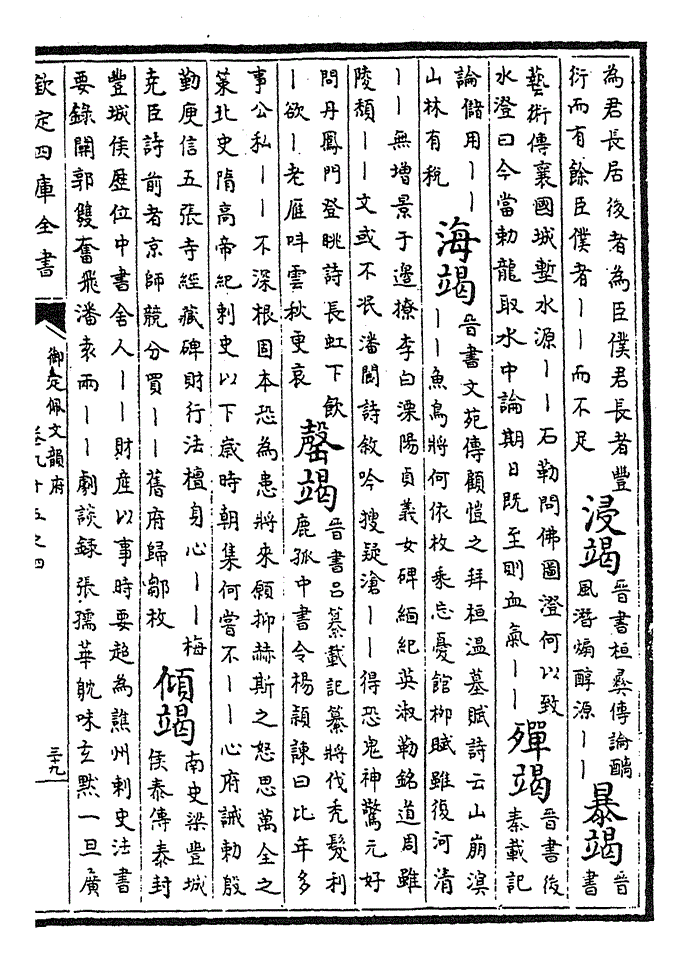 為君長居後者為臣僕君長者豐
衍而有餘臣僕者｜｜而不足
浸竭
晉書桓彝傳論醨
風潛煽醇源｜｜
暴竭
晉書
藝術傳襄國城塹水源｜｜石勒問佛圖澄何以致
水澄曰今當勅龍取水中論期日既至則血氣｜｜
殫竭
晉書後
秦載記
論儲用｜｜
山林有稅
海竭
晉書文苑傳顧愷之拜桓溫墓賦詩云山崩溟
｜｜魚鳥將何依枚乘忘憂館柳賦雖復河清
｜｜無增景于邊撩李白溧陽貞義女碑緬紀英淑勒銘道周雖
陵頹｜｜文或不泯潘閬詩敘吟搜疑滄｜｜得恐鬼神驚元好
問丹鳳門登眺詩長虹下飲
｜欲｜老雁呌雲秋更哀
罄竭
晉書呂纂載記纂將伐禿髮利
鹿孤中書令楊頴諫曰比年多
事公私｜｜不深根固本恐為患將來願抑赫斯之怒思萬全之
筞北史隋高帝紀刺史以下歲時朝集何嘗不｜｜心府誡勅殷
勤庾信五張寺經藏碑財行法檀身心｜｜梅
堯臣詩前者京師競分買｜｜舊府歸鄒枚
傾竭
南史梁豐城
侯泰傳泰封
豐城侯歴位中書舍人｜｜財産以事時要超為譙州刺史法書
要錄開郭雙奮飛潘袁雨｜｜劇談錄張孺華躭味玄默一旦廣
欽定四庫全書
御定佩文韻府
卷九十五之四
三十九